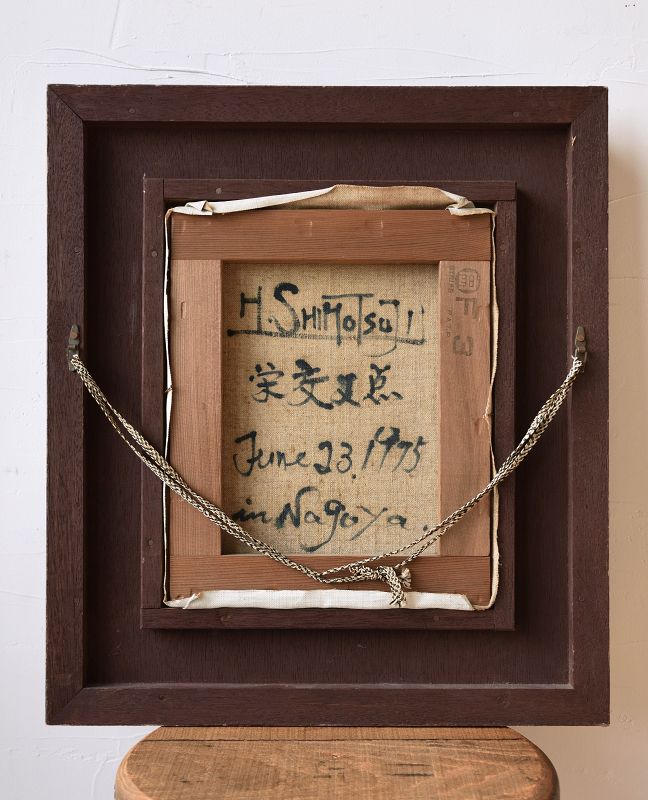 H. SHIMOTSUJI
栄交叉点
June 23. 1975
in Nagoya.
F 3